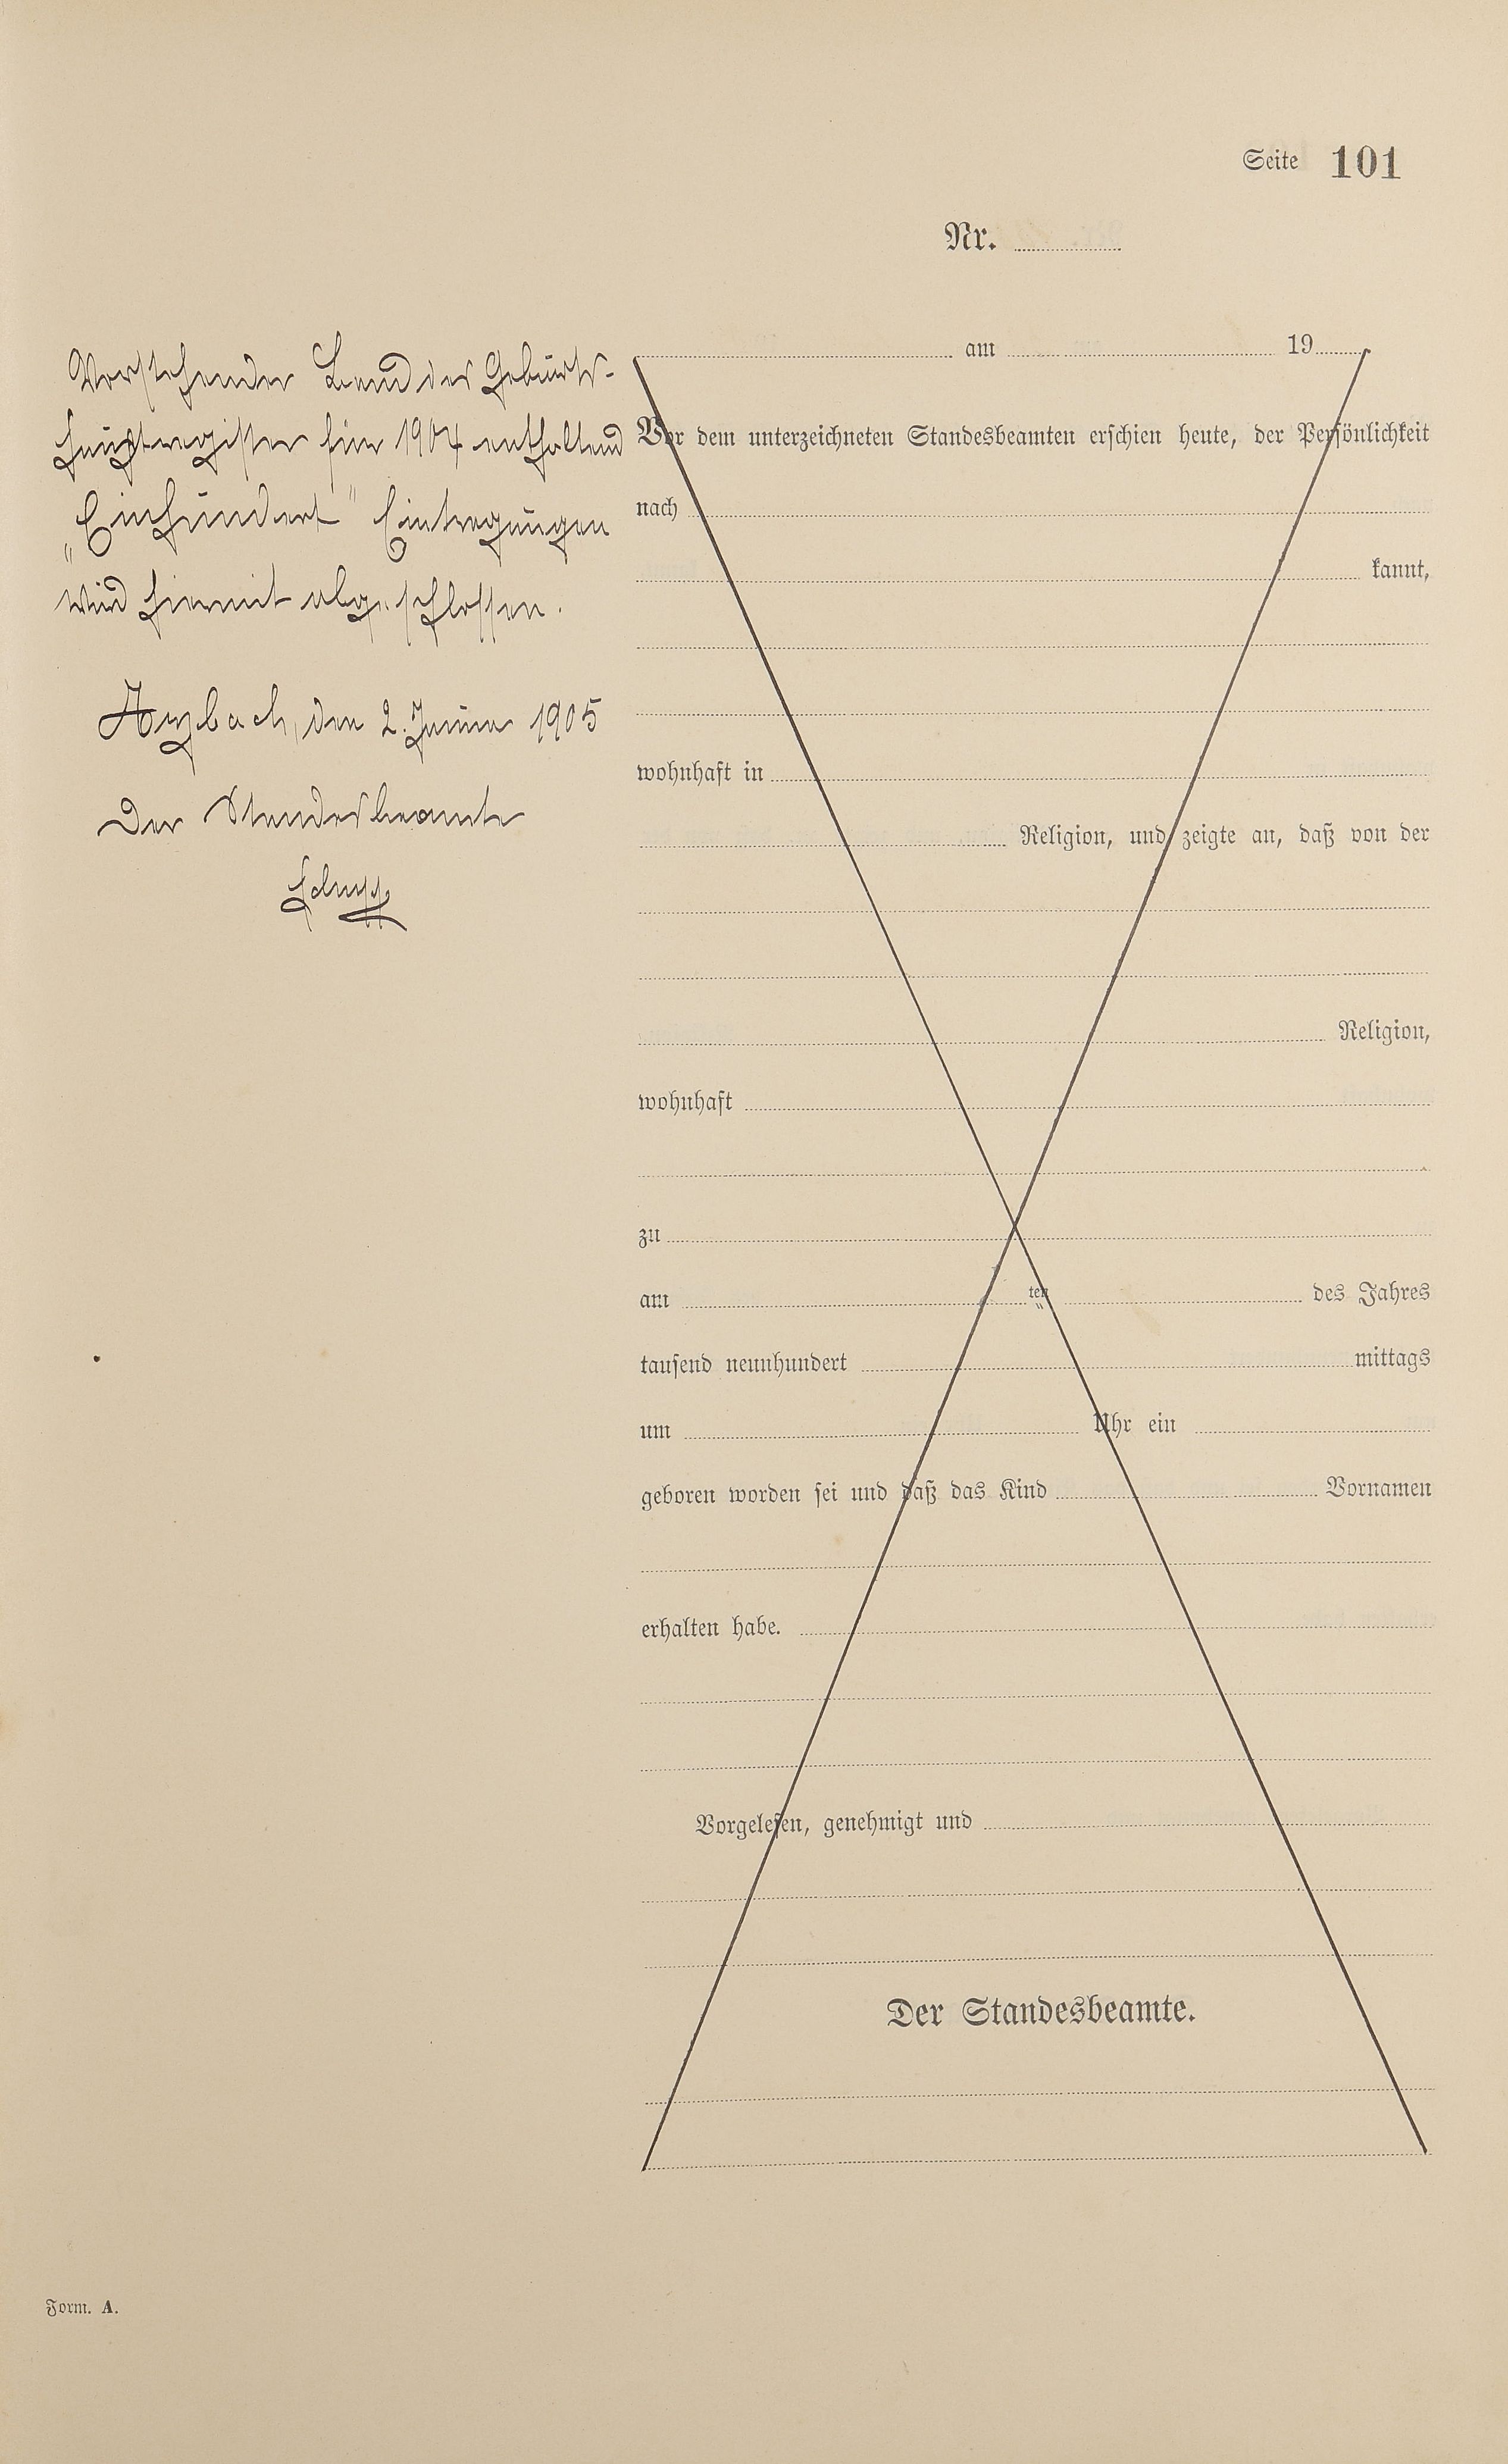 Seite 101
Nr.
Vorstehender Band des Geburts-
hauptregister für 1904 enthaltend
„Einhundert" Eintragungen
wird hiermit abgeschlossen.
den 2. Januar 1905
Der Standesbeamte
am 19
Vor dem unterzeichneten Standesbeamten erschien heute, der Persönlichkeit
nach
kannt,
wohnhaft in
Religion, und zeigte an, daß von der
Religion,
wohnhaft
zu
am ten des Jahres
tausend neunhundert mittags
um Uhr ein
geboren worden sei und daß das Kind Vornamen
erhalten habe.
Vorgelesen, genehmigt und
Der Standesbeamte.
Form. A.